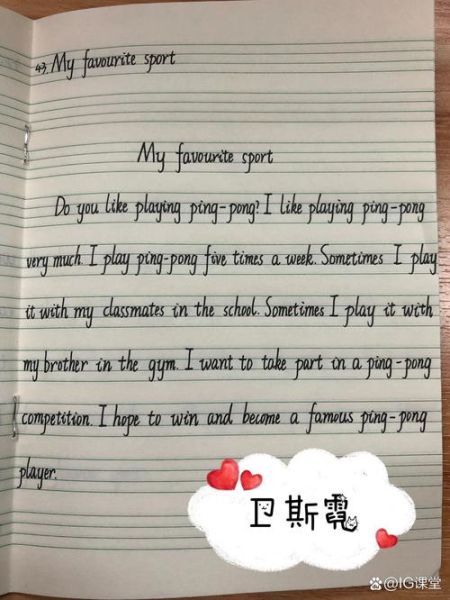 43. My favourite sport
My favourite sport
Do you like playing ping-pong? I like playing ping-pong
very much. I play ping-pong five times a week. Sometimes I play
it with my classmates in the school. Sometimes I play it with
my brother in the gym. I want to take part in a ping-pong
competition. I hope to win and become a famous ping-pong
player.
卫斯霓
@IG课堂